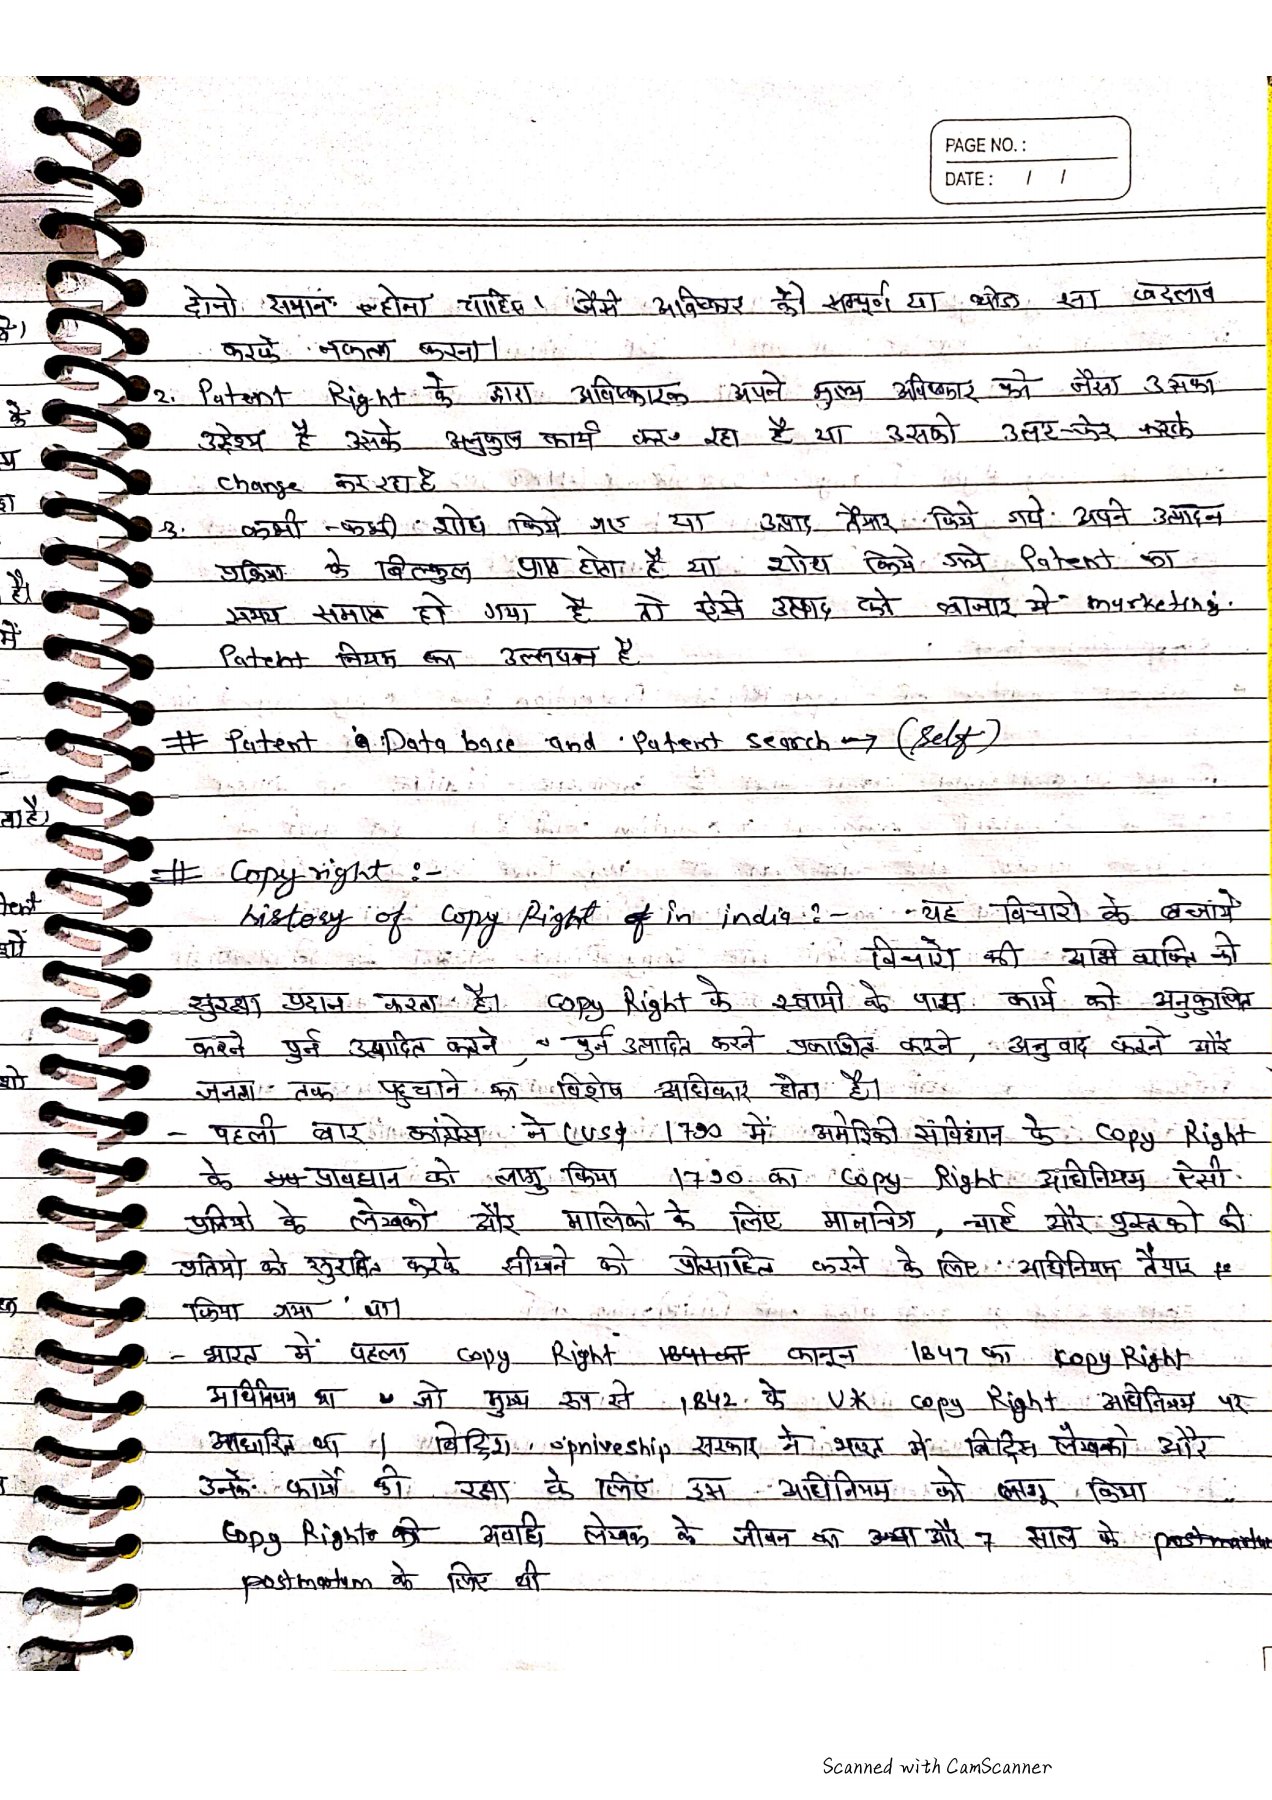 PAGE NO. :
DATE : / /
दोनो समान होना चाहिए। जैसे अविष्कार को सम्पूर्ण या थोडा सा बदलाव
करके नकल करना।
2. Patent Right के द्वारा अविष्कारक अपने मुख्य अविष्कार को जैसा उसका
उद्देश्य है उसके अनुकुल कार्य कर रहा है या उसको उलट-फेर करके
change कर रहा है
3. कभी-कभी शोध किये गए या उत्पाद तैयार किये गये अपने उत्पादन
प्रक्रिया के बिल्कुल प्राप्त होता है या शोध किये गये Patent का
समय समाप्त हो गया है तो ऐसे उत्पाद को बाजार मे marketing.
Patent नियम का उल्लघन है
# Patent Data base and Patent search → (self)
# Copy right :-
history of Copy Right in india :- यह विचारो के बजाये
विचारो की व्यक्ति को
सुरक्षा प्रदान करता है। Copy Right के स्वामी के पास कार्य को अनुकुलित
करने पुर्न उत्पादित करने, पुर्न उत्पादित करने प्रकाशित करने, अनुवाद करने और
जनता तक पहुचाने का विशेष अधिकार होता है।
- पहली बार कांग्रेस ने (US) 1790 में अमेरिकी संविधान के Copy Right
के प्रावधान को लागु किया 1790 का Copy Right अधिनियम ऐसी
प्रतियो के लेखको और मालिको के लिए मानचित्र, चार्ट और पुस्तको की
प्रतियो को सुरक्षित करके सीखने को प्रोत्साहित करने के लिए अधिनियम तैयार
किया गया था।
- भारत में पहला Copy Right कानून 1847 का Copy Right
अधिनियम था जो मुख्य रूप से 1842 के UK Copy Right अधिनियम पर
आधारित था। ब्रिटिश opniveship सरकार ने भारत में ब्रिटिस लेखको और
उनके कार्यो की रक्षा के लिए इस अधिनियम को लागू किया
Copy Right की अवधि लेखक के जीवन का और 7 साल के
postmortum के लिए थी
Scanned with CamScanner